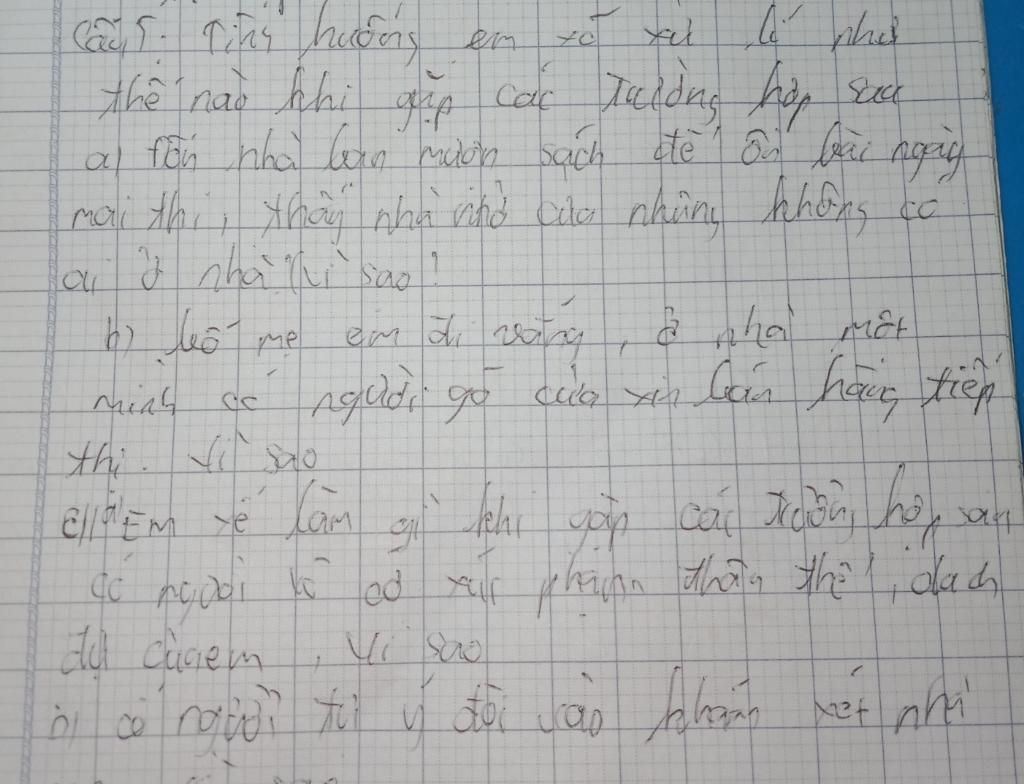 Câu 5: Tình huống em sẽ xử lí như
thế nào khi gặp các trường hợp sau
a) Đến nhà bạn mượn sách để ôn bài ngày
mai thi, thấy nhà mở cửa nhưng không có
ai ở nhà Vì sao?
b) bố mẹ em đi vắng, ở nhà một
mình có người gõ cửa xin bán hàng tiếp
thị. Vì sao
Em sẽ làm gì khi gặp các trường hợp sau
có người cố xúc phạm thân thể, danh
dự của em, Vì sao
b) có người tự ý đòi vào khám xét nhà